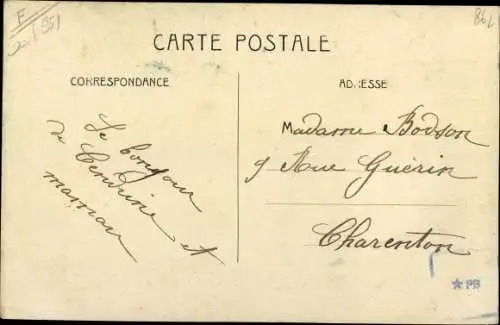 F
CARTE POSTALE
CORRESPONDANCE
AD :ESSE
Le bonjour
de
et
maman
Madame Bodson
9 Rue Guérin
Charenton
PB